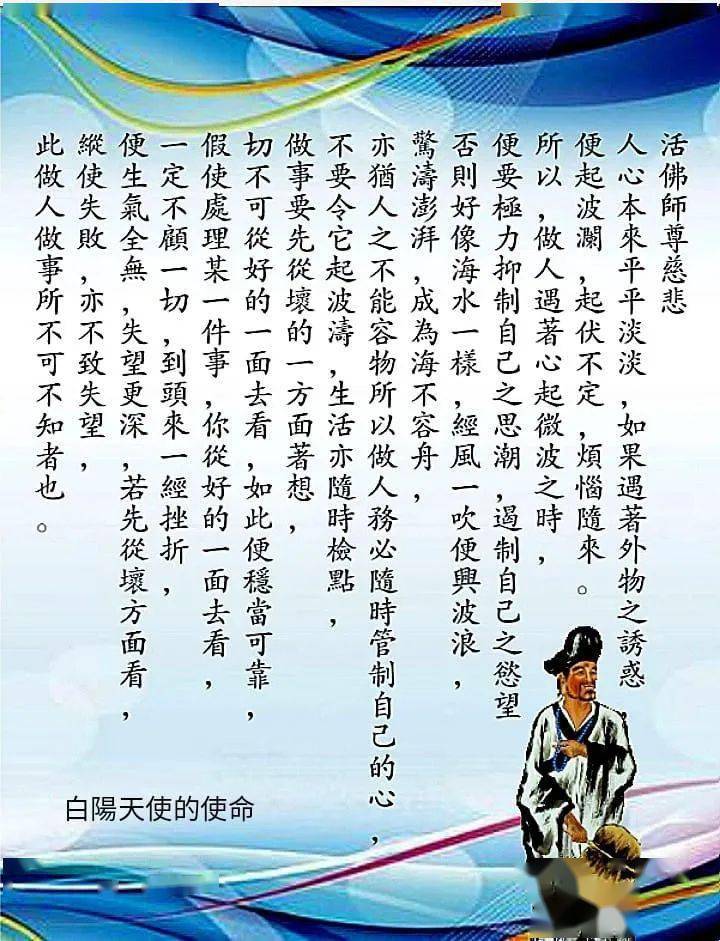 活佛師尊慈悲
人心本來平平淡淡,如果遇著外物之誘惑
便起波瀾,起伏不定,煩惱隨來。
所以,做人遇著心起微波之時,
便要極力抑制自己之思潮,遏制自己之慾望
否則好像海水一樣,經風一吹便興波浪,
驚濤澎湃,成為海不容舟,
亦猶人之不能容物所以做人務必隨時管制自己的心,
不要令它起波濤,生活亦隨時檢點,
做事要先從壞的一方面著想,
切不可從好的一面去看,如此便穩當可靠,
假使處理某一件事,你從好的一面去看,
一定不顧一切,到頭來一經挫折,
便生氣全無,失望更深,若先從壞方面看,
縱使失敗,亦不致失望,
此做人做事所不可不知者也。
白陽天使的使命